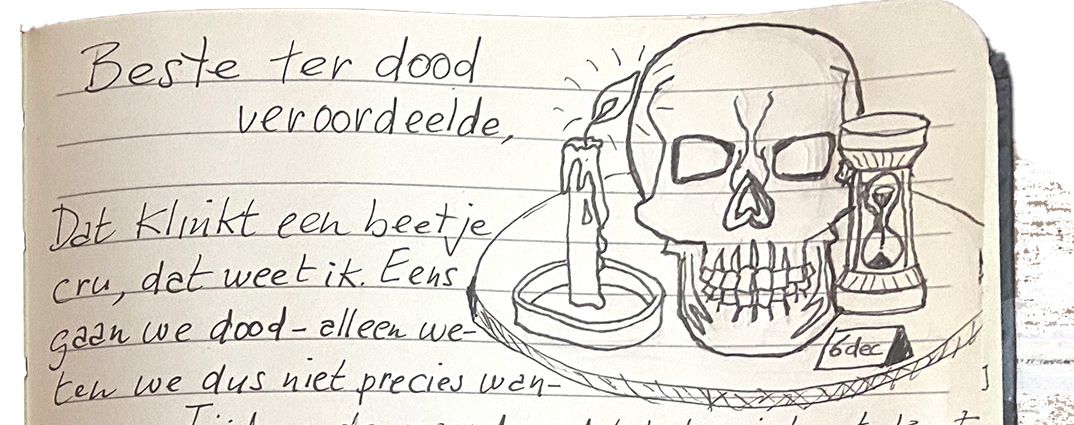 Beste ter dood
veroordeelde,
Dat klinkt een beetje
cru, dat weet ik. Eens
gaan we dood - alleen we-
ten we dus niet precies wan-
6 dec